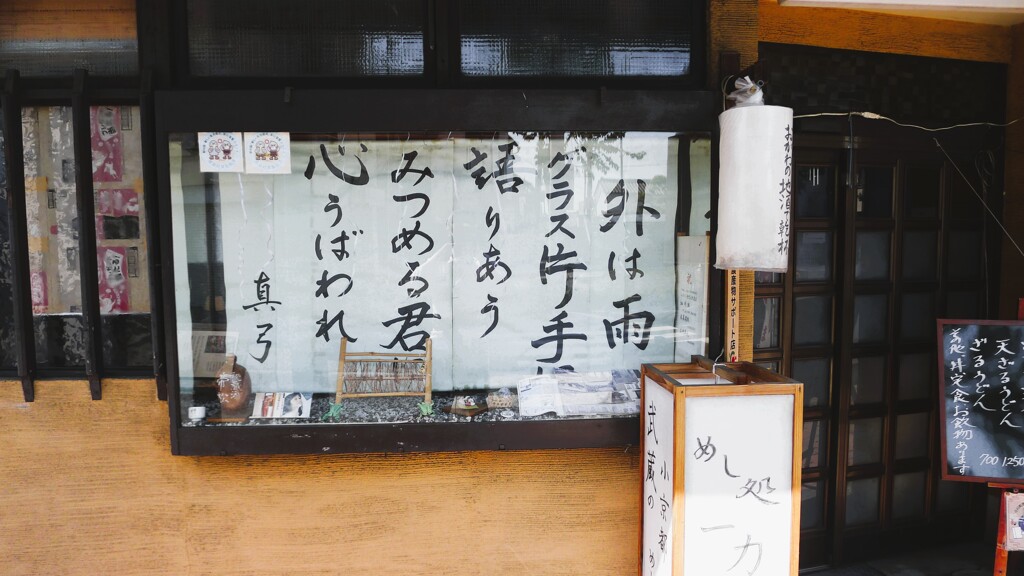 外は雨
グラス片手に
語りあう
みつめる君
心うばわれ
真弓
おがわの地酒で乾杯
産物サポート店
めし処
一力
武蔵の
小京都
天ざるうどん
ざるうどん
お飲物あります
700 1250